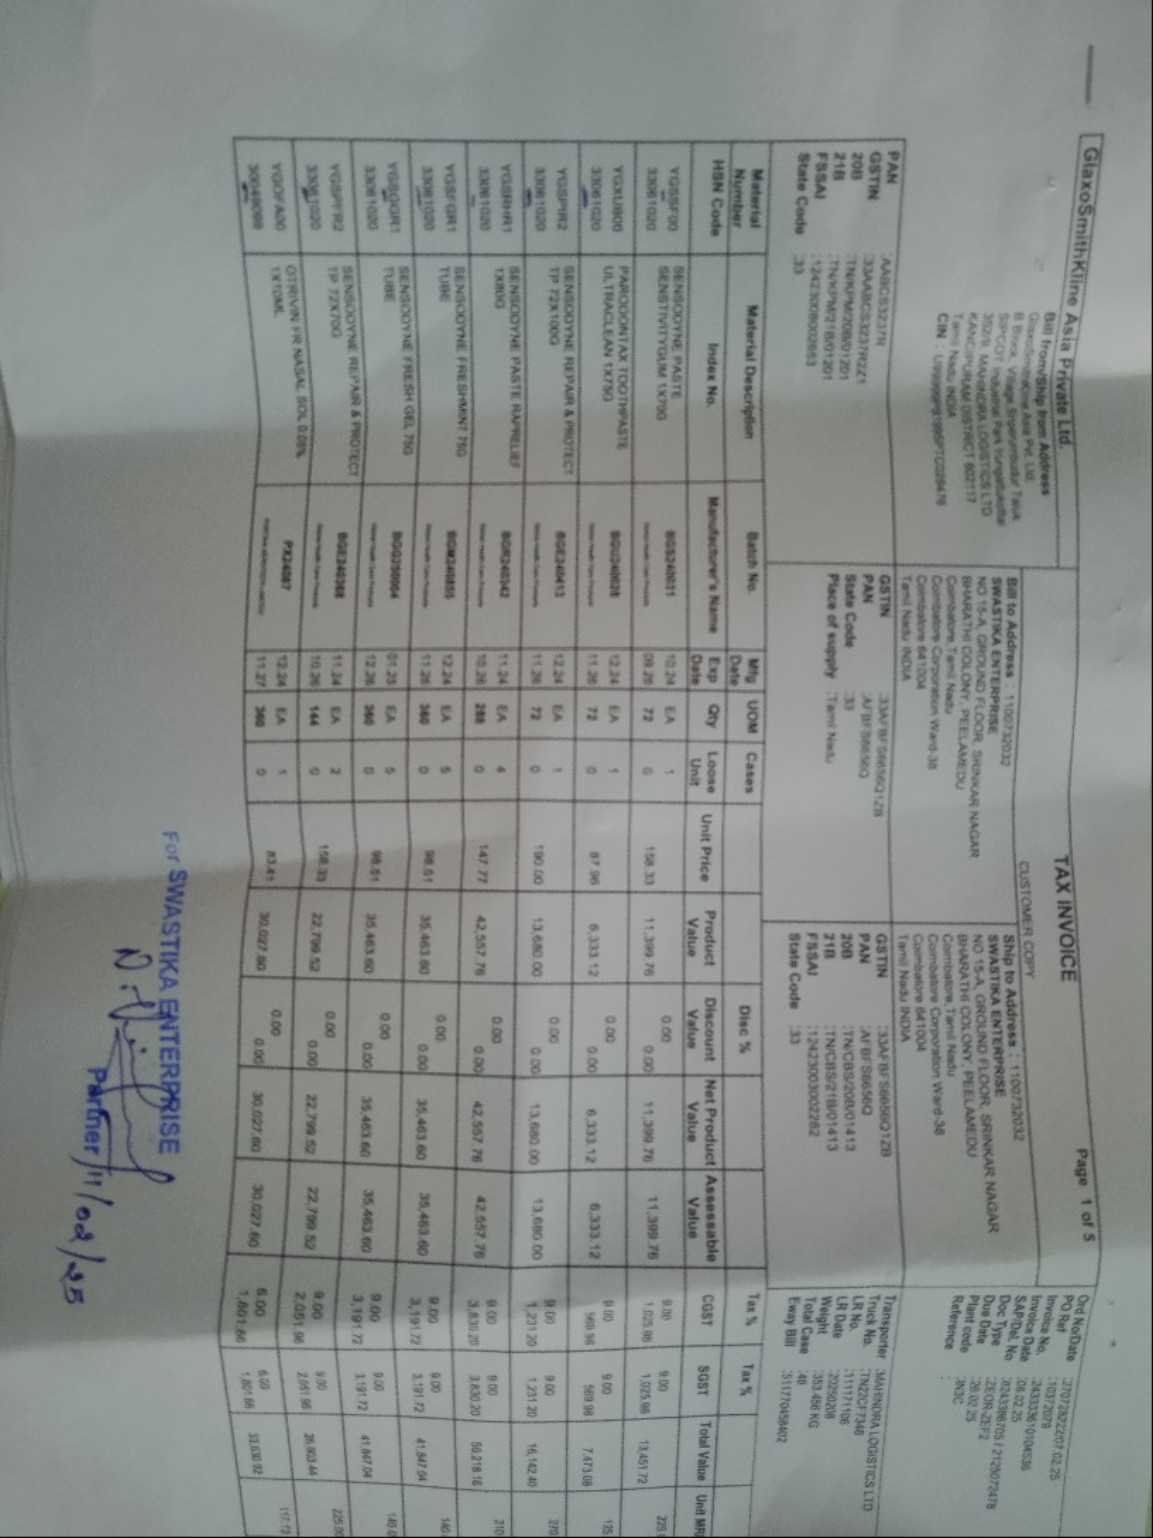 GlaxoSmithKline Asia Private Ltd.
TAX INVOICE
Page 1 of 5
CUSTOMER COPY
Bill from/Ship from Address
GlaxoSmithKline Asia Pvt. Ltd.
B Block, Village Sriperumbudur Taluk
SIPCOT Industrial Park
352/9, MAHINDRA LOGISTICS LTD
KANCIPURAM DISTRICT 602117
Tamil Nadu INDIA
CIN :
PAN :AABCS3237R
GSTIN :33AABCS3237R2Z1
20B :TN/KPM/20B/01201
21B :TN/KPM/21B/01201
FSSAI :12423008002653
State Code :33
Bill to Address : 1100732032
SWASTIKA ENTERPRISE
NO 15-A, GROUND FLOOR, SRINKAR NAGAR
BHARATHI COLONY, PEELAMEDU
Coimbatore,Tamil Nadu
Coimbatore Corporation Ward-38
Coimbatore 641004
Tamil Nadu INDIA
GSTIN :33AFBFS6656Q1ZB
PAN :AFBFS6656Q
State Code :33
Place of supply :Tamil Nadu
Ship to Address : 1100732032
SWASTIKA ENTERPRISE
NO 15-A, GROUND FLOOR, SRINKAR NAGAR
BHARATHI COLONY, PEELAMEDU
Coimbatore,Tamil Nadu
Coimbatore Corporation Ward-38
Coimbatore 641004
Tamil Nadu INDIA
GSTIN :33AFBFS6656Q1ZB
PAN :AFBFS6656Q
20B :TN/CBS/20B/01413
21B :TN/CBS/21B/01413
FSSAI :12423003002262
State Code :33
Ord.No/Date :270728222/07.02.25
PO Ref :10372078
Invoice No. :24333610104536
Invoice Date :08.02.25
SAP/Del. No :8243386705 / 2125072478
Doc Type :ZEOR-ZEF2
Due Date :26.02.25
Plant code :IN3C
Reference :
Transporter :MAHINDRA LOGISTICS LTD
Truck No. :TN22CF7346
LR No. :111171106
LR Date :20250208
Weight :353.456 KG
Total Case :40
Eway Bill :511770458402
Material Number Material Description Batch No. Mfg Date UOM Cases Disc % Tax % Tax %
HSN Code Index No. Manufacturer's Name Exp Date Qty Loose Unit Unit Price Product Value Discount Value Net Product Value Assessable Value CGST SGST Total Value Unit MRP
YGSSF00 SENSODYNE PASTE BGS240031 10.24 EA 1 0.00 9.00 9.00
33061020 SENSTIVITYGUM 1X70G 09.26 72 0 158.33 11,399.76 0.00 11,399.76 11,399.76 1,025.98 1,025.98 13,451.72 225.0
YGXUB00 PARODONTAX TOOTHPASTE BGU240028 12.24 EA 1 0.00 9.00 9.00
33061020 ULTRACLEAN 1X75G 11.26 72 0 87.96 6,333.12 0.00 6,333.12 6,333.12 569.98 569.98 7,473.08 125
YGSPIR2 SENSODYNE REPAIR & PROTECT BGE240413 12.24 EA 1 0.00 9.00 9.00
33061020 TP 72X100G 11.26 72 0 190.00 13,680.00 0.00 13,680.00 13,680.00 1,231.20 1,231.20 16,142.40 270
YGSRHR1 SENSODYNE PASTE RAPRELIEF BGR240342 11.24 EA 4 0.00 9.00 9.00
33061020 1X80G 10.26 288 0 147.77 42,557.76 0.00 42,557.76 42,557.76 3,830.20 3,830.20 50,218.16 210
YGSFGR1 SENSODYNE FRESHMINT 75G BGM240855 12.24 EA 5 0.00 9.00 9.00
33061020 TUBE 11.26 360 0 98.51 35,463.60 0.00 35,463.60 35,463.60 3,191.72 3,191.72 41,847.04 140
YGSQGR1 SENSODYNE FRESH GEL 75G BGG250004 01.25 EA 5 0.00 9.00 9.00
33061020 TUBE 12.26 360 0 98.51 35,463.60 0.00 35,463.60 35,463.60 3,191.72 3,191.72 41,847.04 140.0
YGSPFR2 SENSODYNE REPAIR & PROTECT BGE240368 11.24 EA 2 0.00 9.00 9.00
33061020 TP 72X70G 10.26 144 0 158.33 22,799.52 0.00 22,799.52 22,799.52 2,051.96 2,051.96 26,903.44 225.00
YGOFA00 OTRIVIN FR NASAL SOL 0.05% PX24087 12.24 EA 1 0.00 6.00 6.00
30049099 1X10ML 11.27 360 0 83.41 30,027.60 0.00 30,027.60 30,027.60 1,801.66 1,801.66 33,630.92 117.73
For SWASTIKA ENTERPRISE
Partner 11/02/25